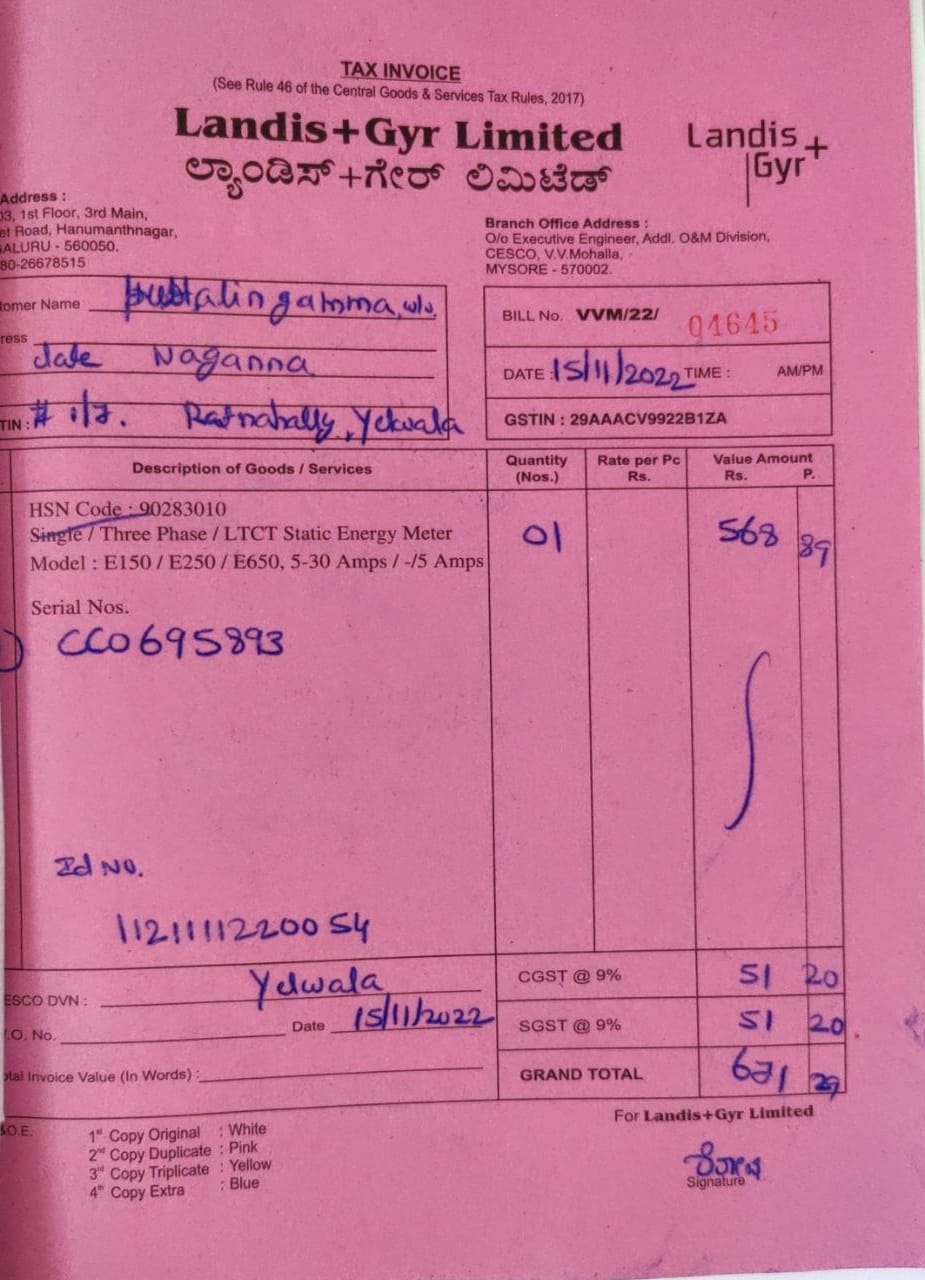 TAX INVOICE
(See Rule 46 of the Central Goods & Services Tax Rules, 2017)
Landis+Gyr Limited
ಲ್ಯಾಂಡಿಸ್+ಗೇರ್ ಲಿಮಿಟೆಡ್
Landis
Gyr+
Address :
03, 1st Floor, 3rd Main,
et Road, Hanumanthnagar,
ALURU - 560050.
80-26678515
Branch Office Address :
O/o Executive Engineer, Addl. O&M Division,
CESCO, V.V.Mohalla,
MYSORE - 570002.
tomer Name w/o,
ress
late Naganna
TIN : # 1/7. Ratnahally, Yelwala
BILL No. VVM/22/ 04645
DATE : 15/11/2022 TIME : AM/PM
GSTIN : 29AAACV9922B1ZA
Description of Goods / Services Quantity (Nos.) Rate per Pc Rs. Value Amount Rs. P.
HSN Code : 90283010
Single / Three Phase / LTCT Static Energy Meter 01 568 89
Model : E150 / E250 / E650, 5-30 Amps / -/5 Amps
Serial Nos.
) CC0695893
Id NO.
11211112200 54
ESCO DVN : Yelwala
.O. No. Date 15/11/2022
otal Invoice Value (In Words) :
CGST @ 9% 51 20
SGST @ 9% 51 20
GRAND TOTAL 671 29
For Landis+Gyr Limited
Signature
.O.E.
1st Copy Original : White
2nd Copy Duplicate : Pink
3rd Copy Triplicate : Yellow
4th Copy Extra : Blue